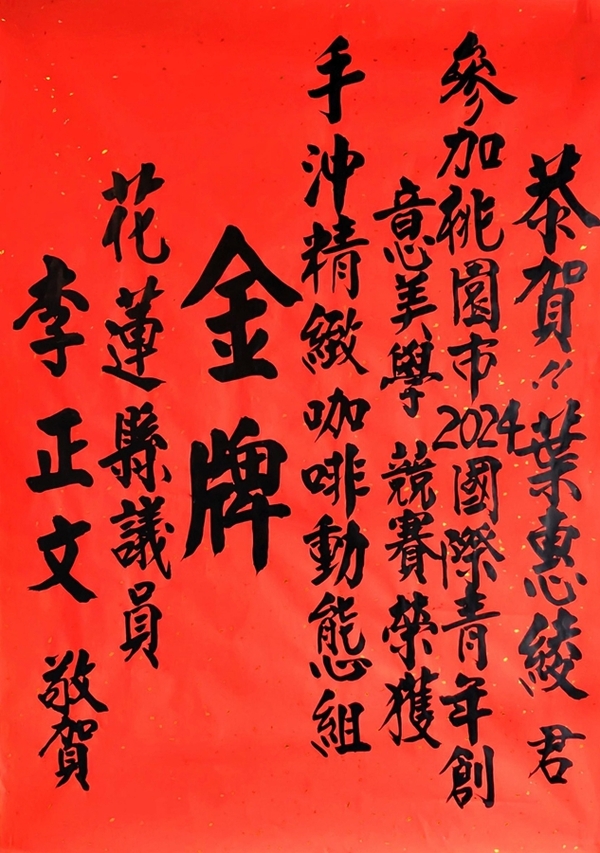 恭賀〃葉惠綾 君
參加桃園市2024國際青年創
意美學 競賽榮獲
手沖精緻咖啡動態組
金牌
花蓮縣議員
李正文 敬賀